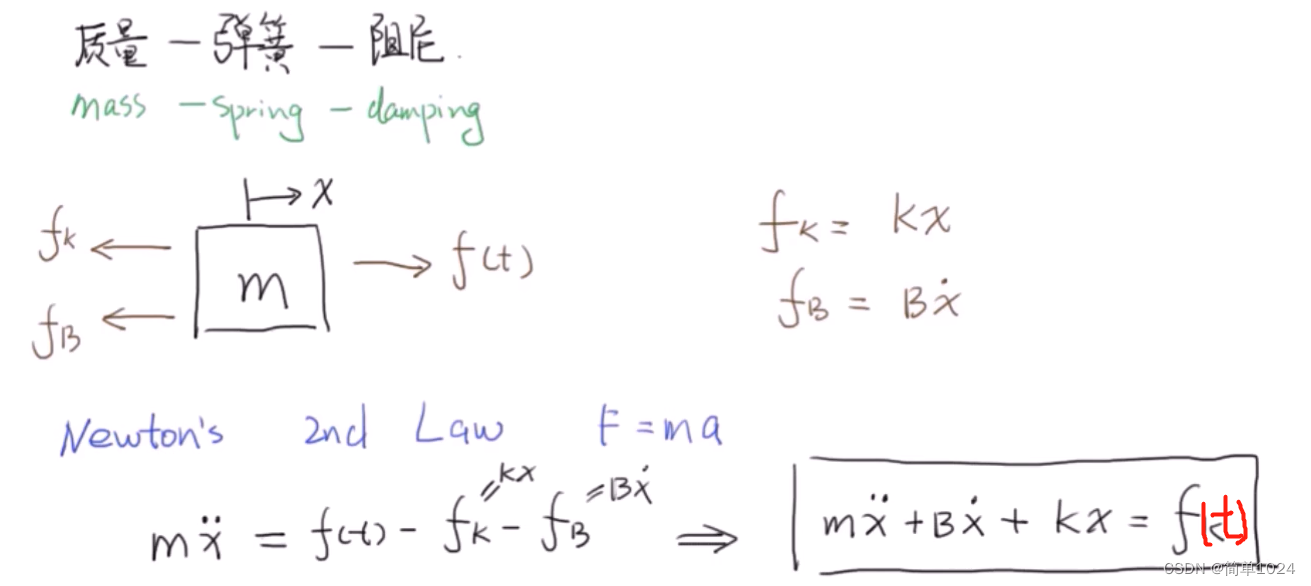 质量 — 弹簧 — 阻尼.
mass — spring — damping
x
fK
m
f(t)
fB
fK = kx
fB = Bẋ
Newton's 2nd Law F = ma
= kx = Bẋ
mẍ = f(t) - fK - fB ⇒ mẍ + Bẋ + kx = f(t)
CSDN @简单1024